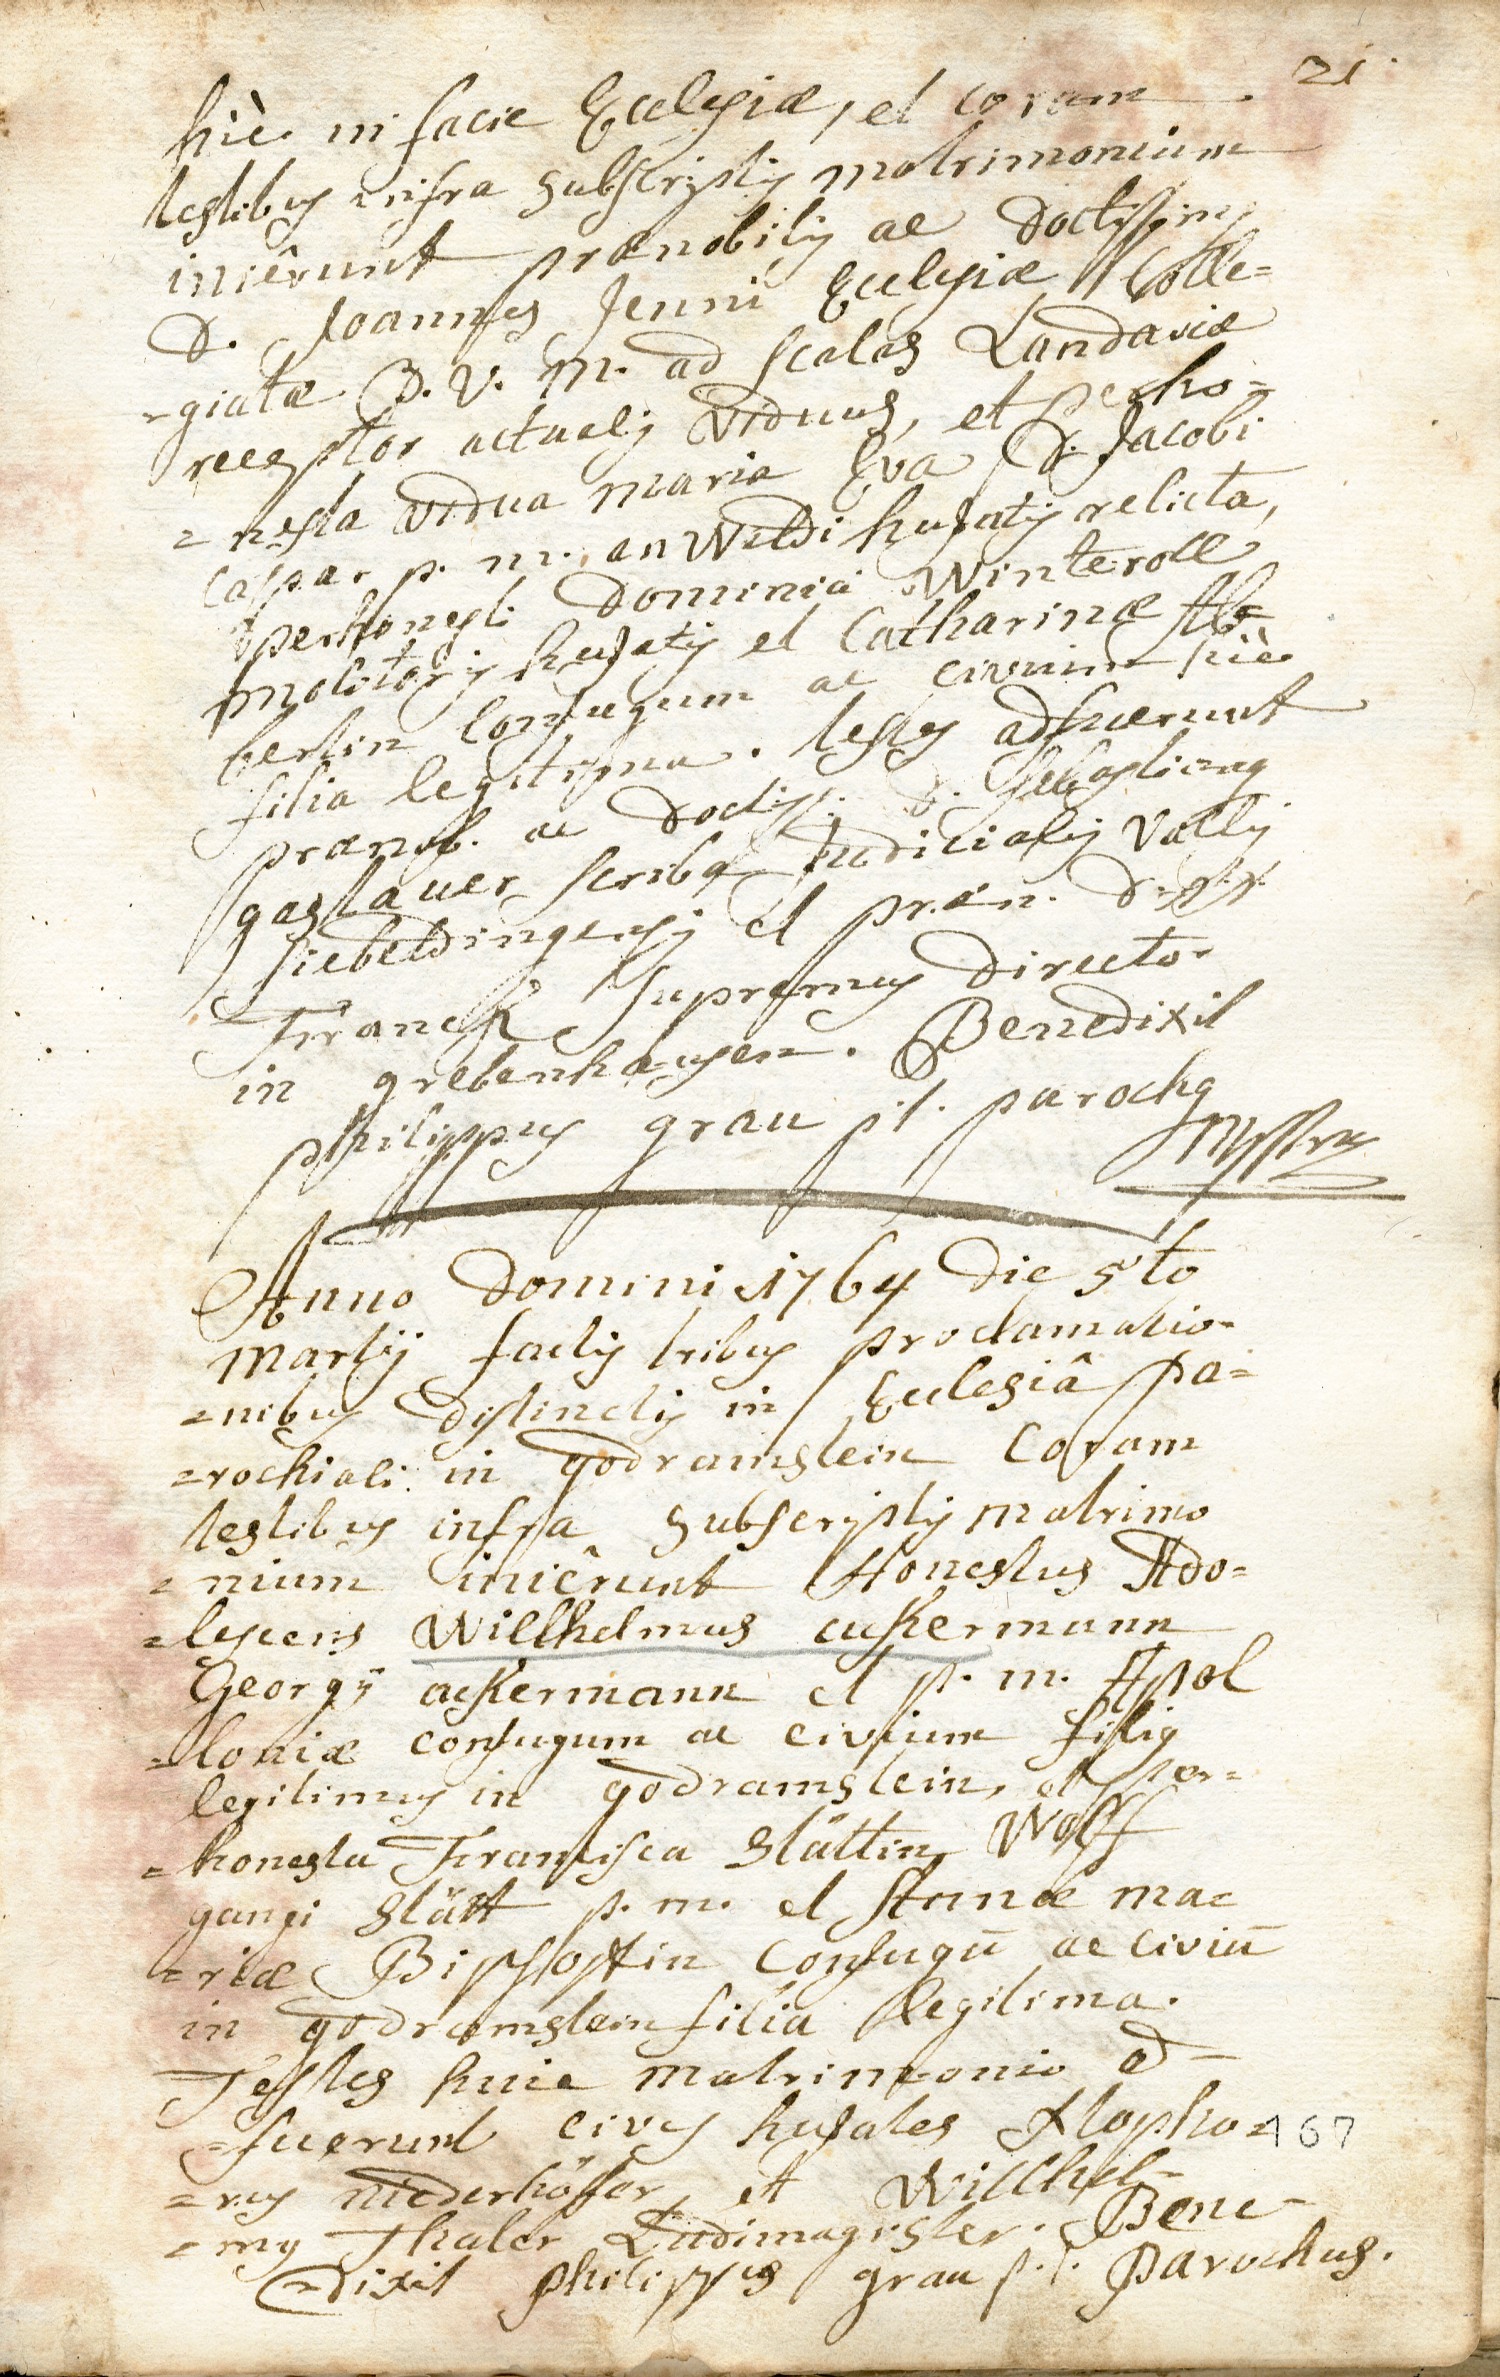 21.
hìc in facie Ecclesiæ, et coram
testibus infra subscriptis matrimonium
iniêrunt prænobilis ac doctissimus
D. Joannes Jenni Ecclesiæ Colle=
=giatæ B. V. M. ad scalas Landaviæ
receptor actualis viduus, et perho=
=nesta vidua Maria Eva D. Jacobi
Caspar p. m. anweldi hujatis relicta,
perhonesti Dominici Winteroll
molitoris hujatis et Catharinæ Al=
berlin conjugum ac civium hìc
filia legitima. testes adfuerunt
prænob. ac doctiss. D. Sebastianus
gastauer scriba Judicialis Vallis
siebeldingensis et præn. D.
Franck supremus director
in grebenhausen. Benedixit
philippus grau p.t. parochus
Anno Domini 1764 die 5to
Martij factis tribus proclamatio=
=nibus distinctis in Ecclesiâ pa=
=rochiali in godramstein Coram
testibus infra subscriptis matrimo
=nium iniêrunt Honestus Ado=
=lescens Willhelmus ackermann
Georgij ackermann et p. m. Apol
=loniæ conjugum ac civium filius
legitimus in godramstein, et per=
=honesta Francisca Slättin, Wolff
gangi Slätt p. m. et Annæ Ma=
=riæ Bischoffin Conjugū ac civiū
in godramstein filia legitima.
Testes huic matrimonio ad=
=fuerunt cives hujates Xtopho=
=rus niederhöffer, et Willhel=
=mus Thaler Ludimagister. Bene=
=dixit philippus grau p.t. Parochus.
167